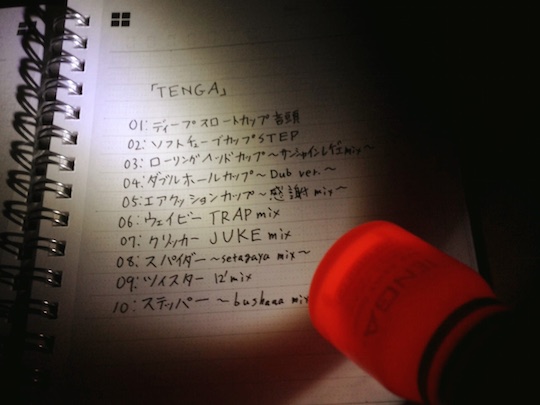 「TENGA」
01:ディープスロートカップ音頭
02:ソフトチューブカップSTEP
03:ローリングヘッドカップ〜サンシャインレゲエmix〜
04:ダブルホールカップ〜Dub ver.〜
05:エアクッションカップ〜感謝mix〜
06:ウェイビーTRAP mix
07:クリッカーJUKE mix
08:スパイダー〜setagaya mix〜
09:ツイスター 12'mix
10:ステッパー〜bushana mix
TENGA